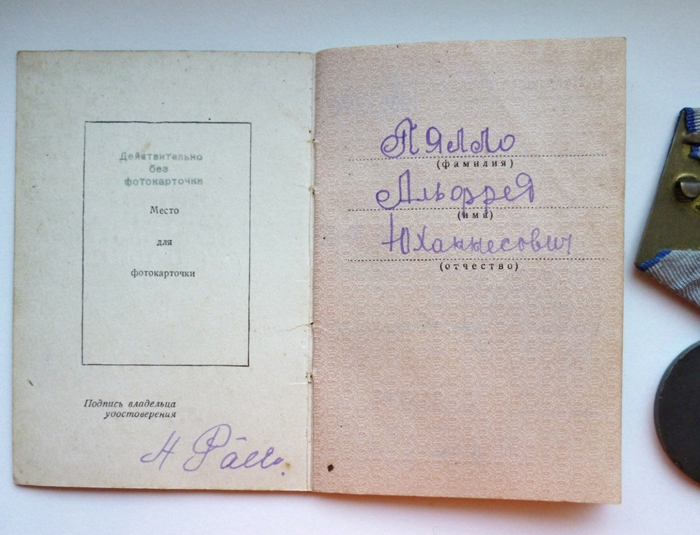 Действительно
без
фотокарточки
Место
для
фотокарточки
Подпись владельца
удостоверения
Пялло
(фамилия)
Альфред
(имя)
Юханнесович
(отчество)